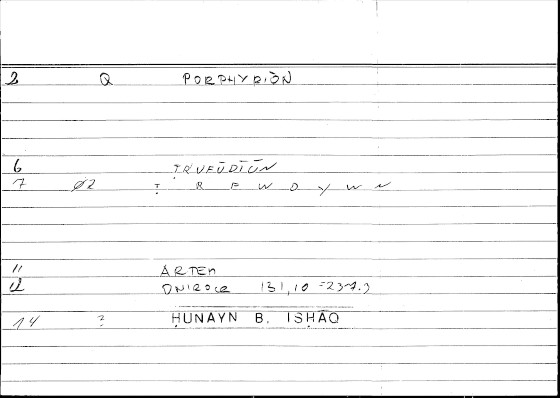 2 Q PORPHYRIŌN
6 ṬRVFŪDĪŪN
7 02 Ṭ R F W D Y W N
11 ARTEM
12 ONIROCR 131,10 =239.3
14 ? ḤUNAYN B. ISḤĀQ